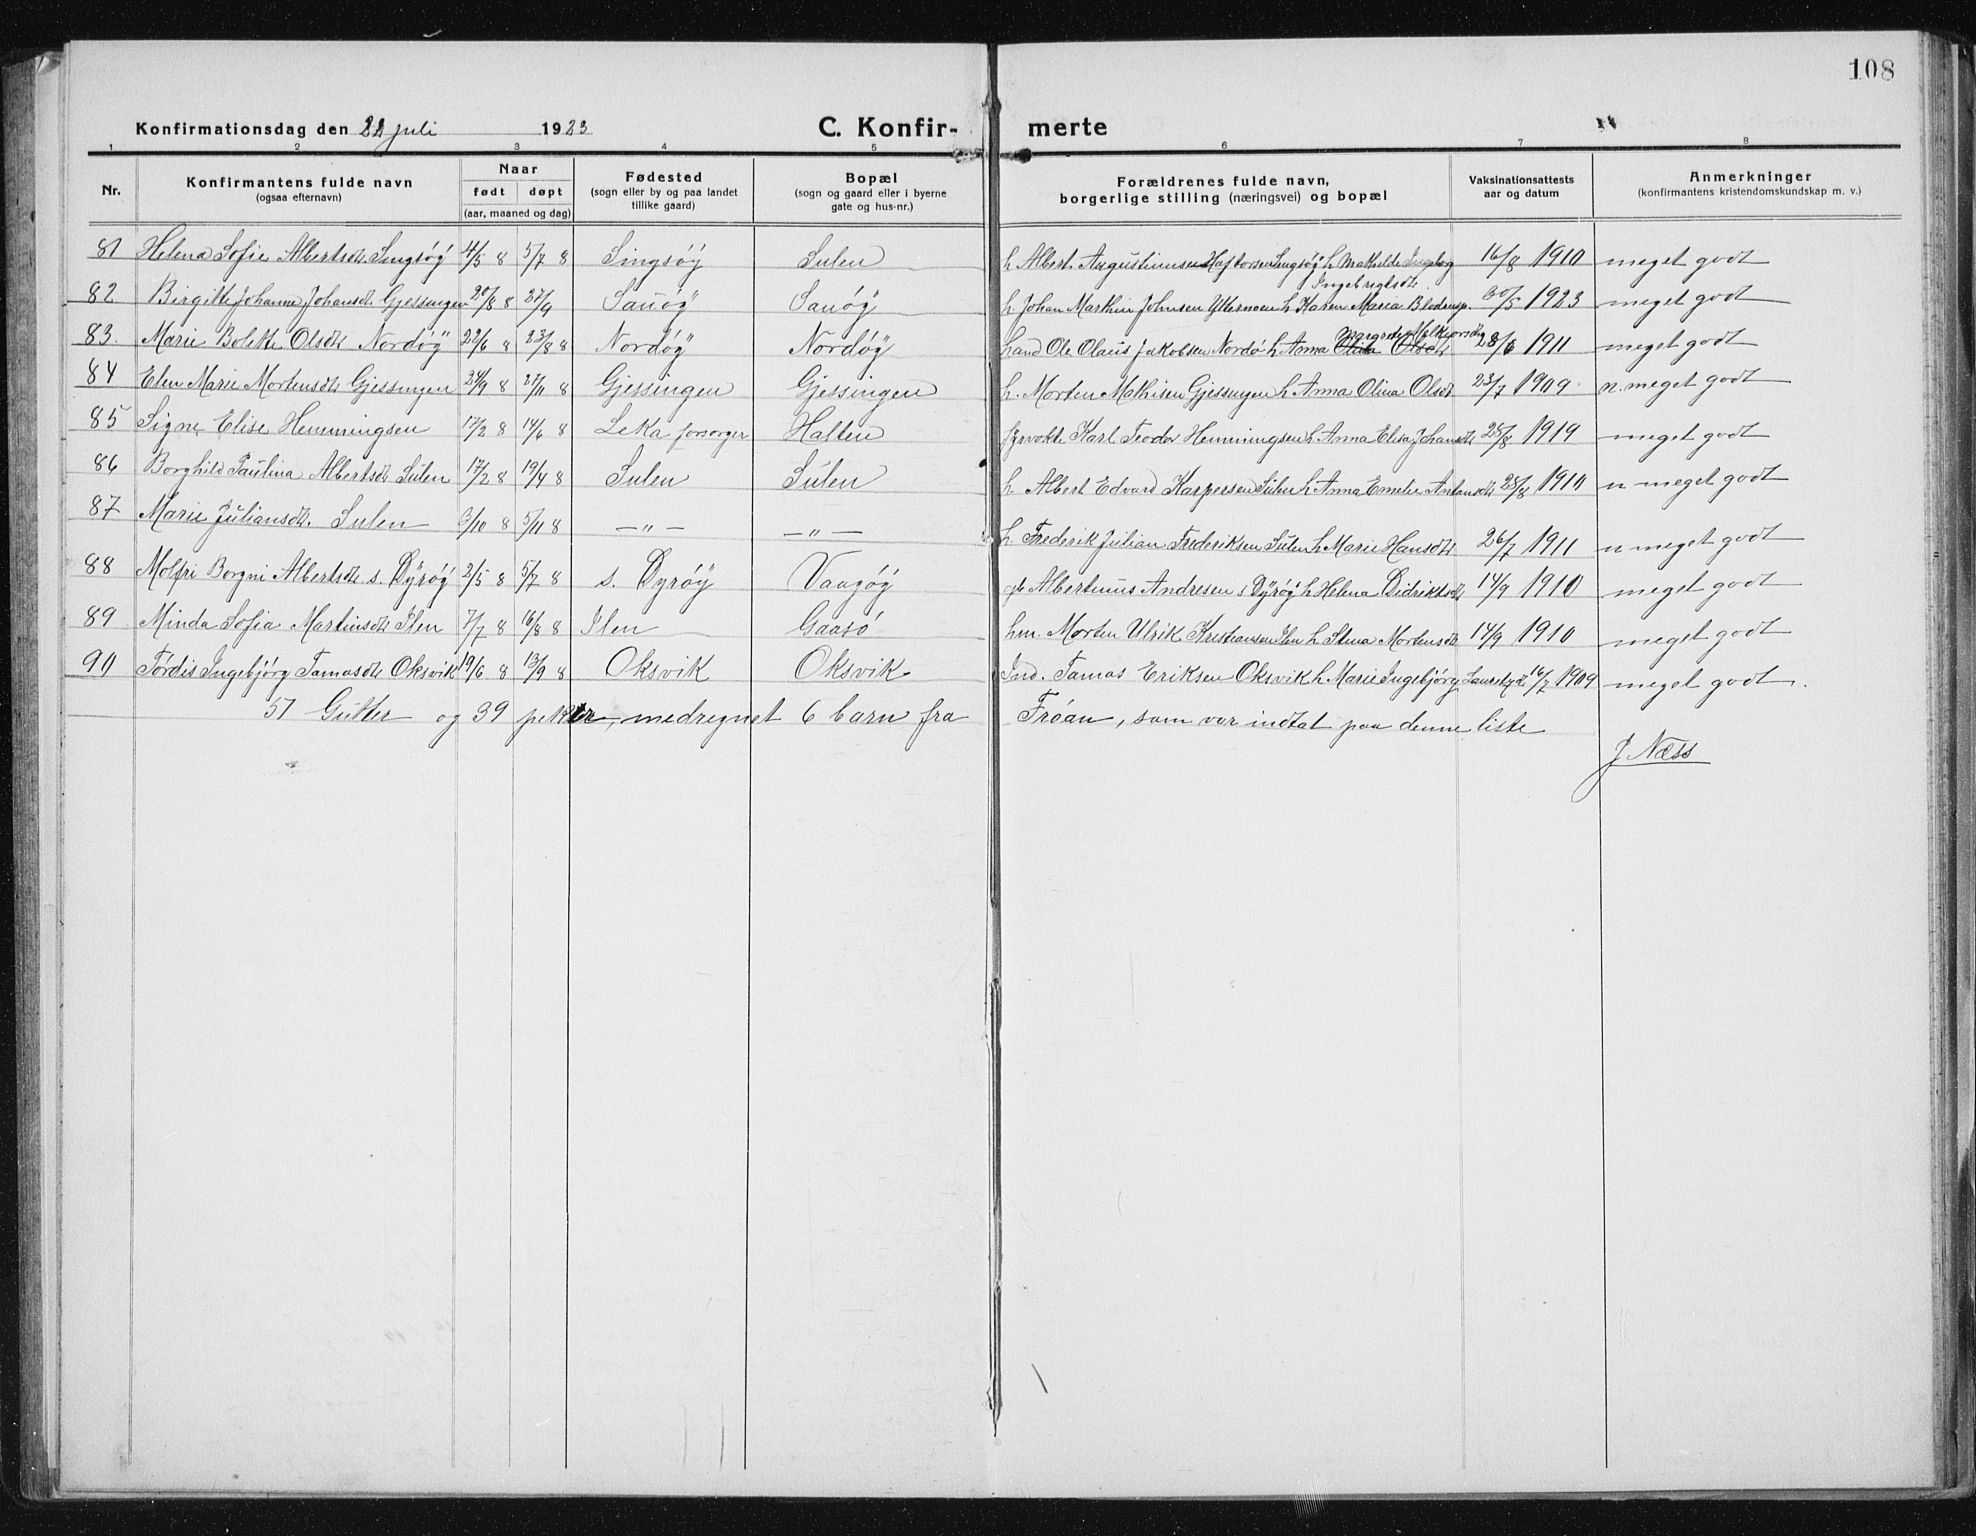 108
Konfirmationsdag den 22 juli 1923 C. Konfirmerte
1 2 3 4 5 6 7 8
Nr. Konfirmantens fulde navn (ogsaa efternavn) Naar født døpt (aar, maaned og dag) Fødested (sogn eller by og paa landet tillike gaard) Bopæl (sogn og gaard eller i byerne gate og hus-nr.) Forældrenes fulde navn, borgerlige stilling (næringsvei) og bopæl Vaksinationsattests aar og datum Anmerkninger (konfirmantens kristendomskundskap m. v.)
81 Helena Sofie Albertsdt. Singsøy 4/5 8 5/7 8 Singsøy Sulen h Albert Augustinusen Haftorsen Singsøy h Mathilde Ingebregtsdt. 16/8 1910 meget godt
82 Birgitte Johanne Johansdt. Gjessingen 20/8 8 27/9 Sauøy Sauøy h. Johan Marthin Johnsen Ytternoen h Karen Maria 30/5 1923 meget godt
83. Marie Bolette Olsdt. Nordøy 22/6 8 23/8 8 Nordøy Nordøy Land Ole Olaus Jakobsen Nordø h Anna Margrete Melkiorsdtr 28/6 1911 meget godt
84 Elen Marie Mortensdt. Gjessingen 24/9 8 27/11 8 Gjessingen Gjessingen h. Morten Mathisen Gjessingen h Anna Olina Olsdt 23/7 1909. n. meget godt
85 Signe Elise Henningsen 17/2 8 14/6 8 Leka forsorger Halten fyrvokte Karl Teodor Henningsen h. Anna Elisa Johansdt 25/8 1919 meget godt
86 Borghild Paulina Albertsdt Sulen 17/2 8 19/4 8 Sulen Sulen h. Albert Edvard Kaspersen Sulen h Anna Emelie Antonsdt 25/8 1910 n meget godt
87 Marie Juliansdt. Sulen 3/10 8 5/11 8 — " — — " — h. Frederik Julian Frederiksen Sulen h Marie Hansdt 26/7 1911 n meget godt
88 Molfri Borgni Albertsdt s. Dyrøy 2/5 8 5/7 8 s. Dyrøy Vaagøy gb Albertinus Andresen s Dyrøy h Helena Didriksdt 14/9 1910 meget godt
89 Minda Sofia Martinsdt Ilen 7/7 8 16/8 8 Ilen Gaasø hm. Morten Ulrik Kristiansen Ilen h Stena Mortensdt 14/9 1910 meget godt
90 Tordis Ingebjörg Tomasdt Oksvik 19/6 8 13/9 8 Oksvik Oksvik Ind. Tomas Eriksen Oksvik h Marie Ingebjörg 16/7 1909 meget godt.
51 Gutter og 39 piker, medregnet 6 barn fra Froan, som var indtat paa denne liste
J Næss